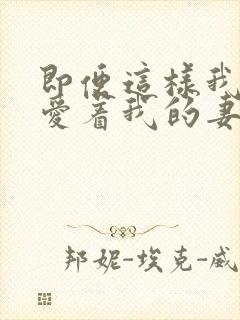 即便這樣我
愛着我的妻
邦妮-埃克-威